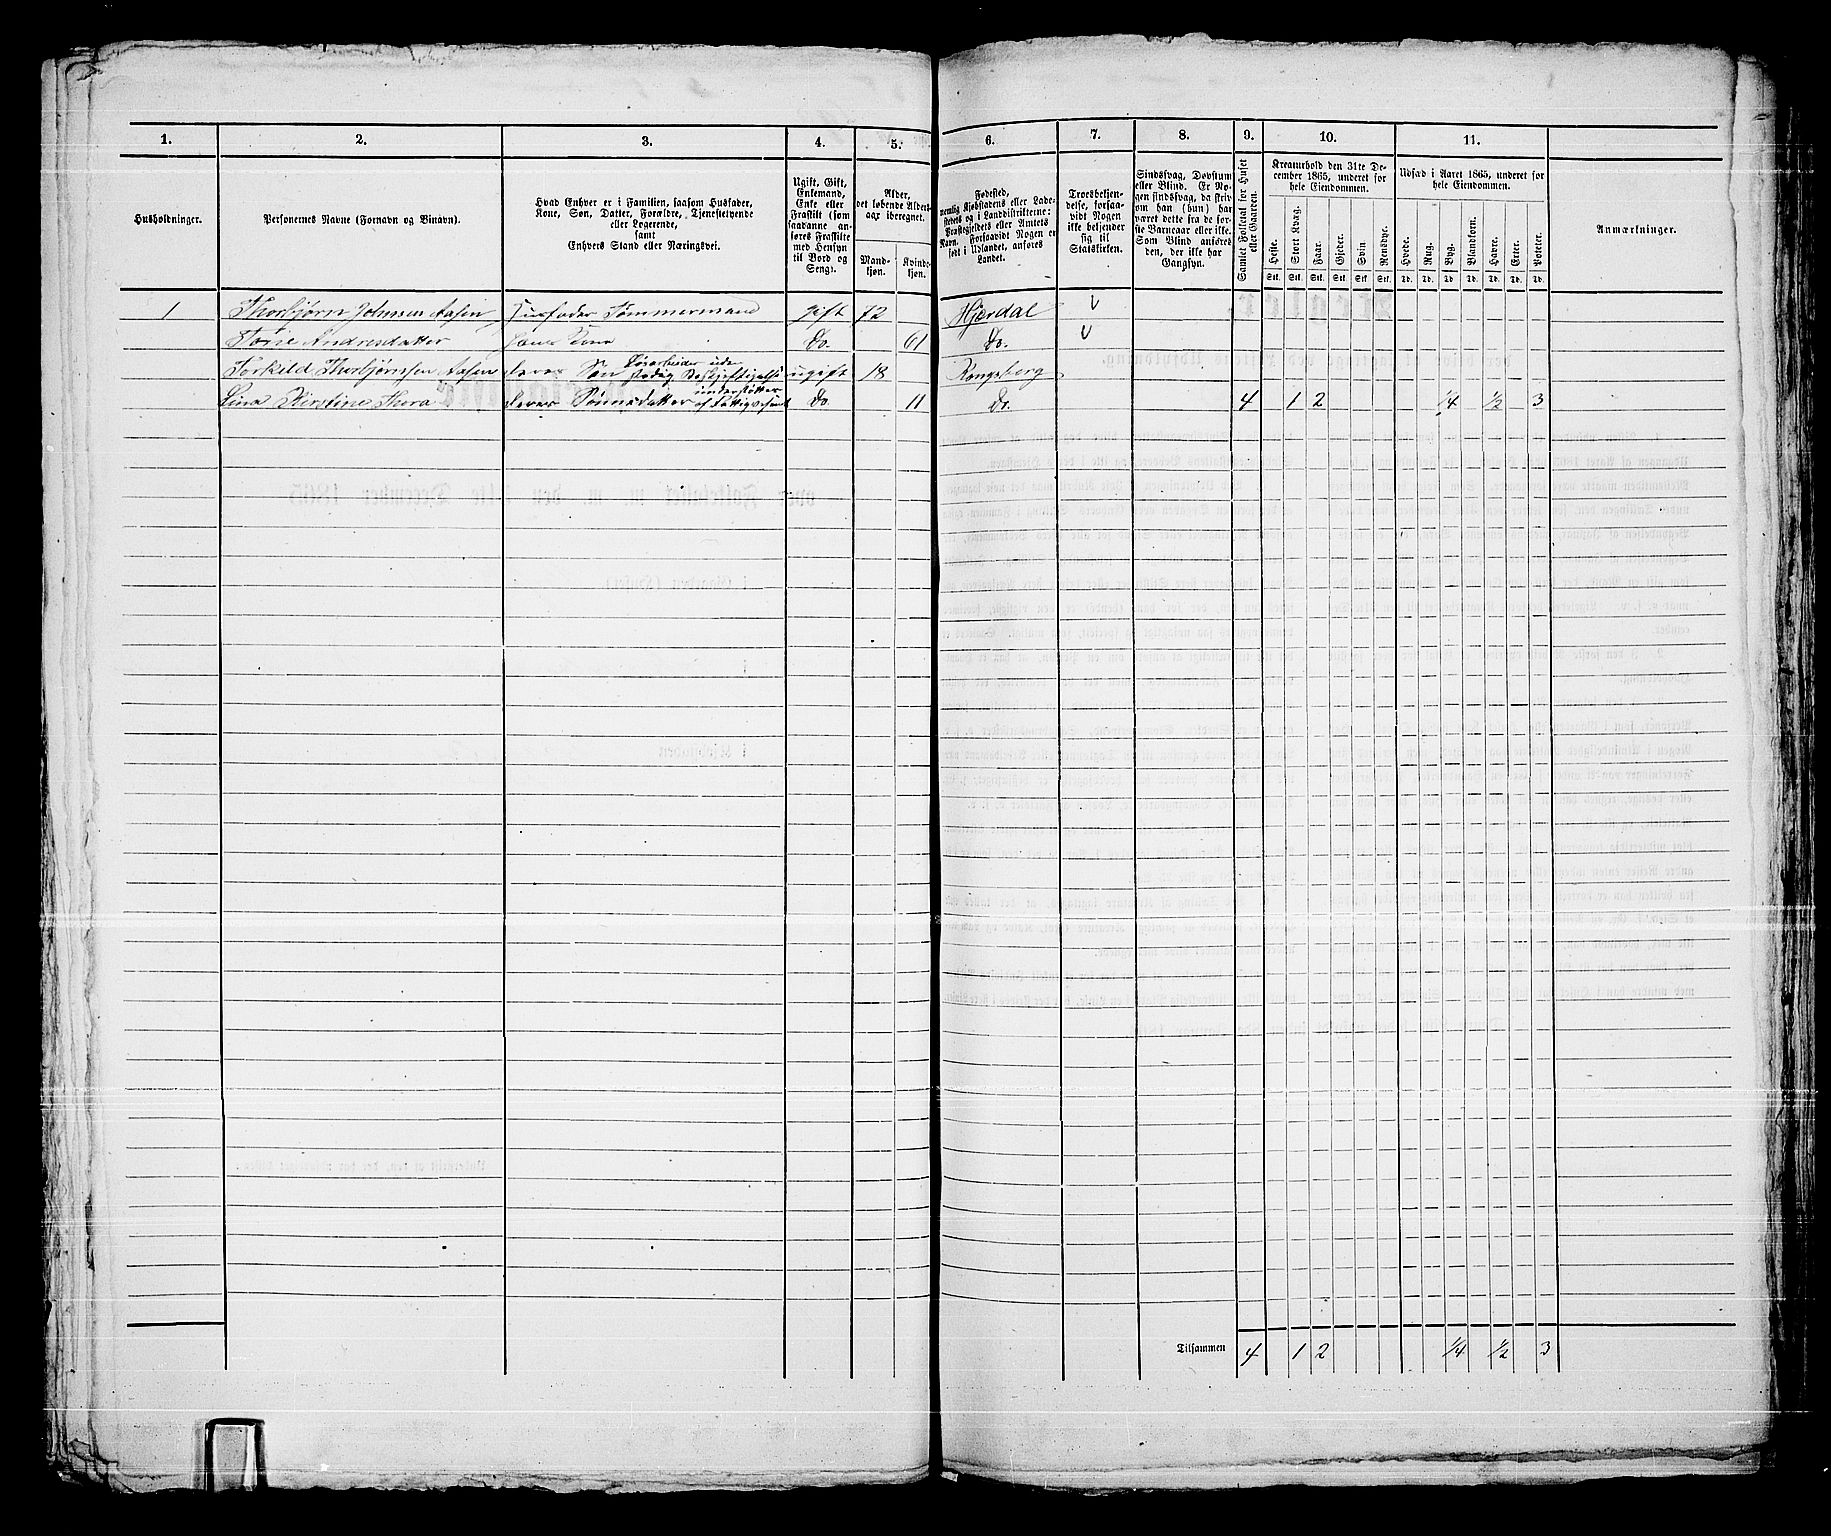 1. 2. 3. 4. 5. 6. 7. 8. 9. 10. 11.
Husholdninger.
Personernes Navne (Fornavn og Binavn).
Hvad Enhver er i Familien, saasom Husfader,
Kone, Søn, Datter, Forældre, Tjenestetyende
eller Logerende,
samt
Enhvers Stand eller Næringsvei.
Ugift, Gift,
Enkemand,
Enke eller
Fraskilt (som
saadanne an-
føres Fraskilte
med Hensyn
til Bord og
Seng).
Alder,
det løbende Alders-
aar iberegnet.
Mand-
kjøn.
Kvinde-
kjøn.
Fødested,
nemlig Kjøbstadens eller Lade-
stedets og i Landdistrikterne:
Præstegjeldets eller Amtets
Navn. Forsaavidt Nogen er
født i Udlandet, anføres
Landet.
Troesbekjen-
delse, forsaa-
vidt Nogen
ikke bekjender
sig til
Statskirken.
Sindssvag, Døvstum
eller Blind. Er No-
gen sindssvag, da skriv
om han (hun) har
været dette fra de før-
ste Barneaar eller ikke.
Som Blind anføres
den, der ikke har
Gangsyn.
Samlet Folketal for Huset
eller Gaarden.
Kreaturhold den 31te De-
cember 1865, underet for
hele Eiendommen.
Heste. Stort Kvæg. Faar. Gjeder. Svin. Rensdyr.
Stk. Stk. Stk. Stk. Stk. Stk.
Udsæd i Aaret 1865, underet for
hele Eiendommen.
Hvede. Rug. Byg. Blandkorn. Havre. Erter. Poteter.
Td. Td. Td. Td. Td. Td. Td.
Anmærkninger.
1 Thorbjørn Johnsen Aasen Husfader Tømmermand gift 72 Hjerdal V
Tone Andresdatter Hans Kone Do. 61 Do. V
Torkild Thorbjørnsen Aasen deres Søn Løsarbeider uden stadig Beskjeftigelse ugift 18 Kongsberg
Lina Kirstine Thora deres Sønnedatter understøttes af Fattigvæsenet Do. 11 Do. 4 1 2 1/4 1/2 3
Tilsammen 4 1 2 1/4 1/2 3